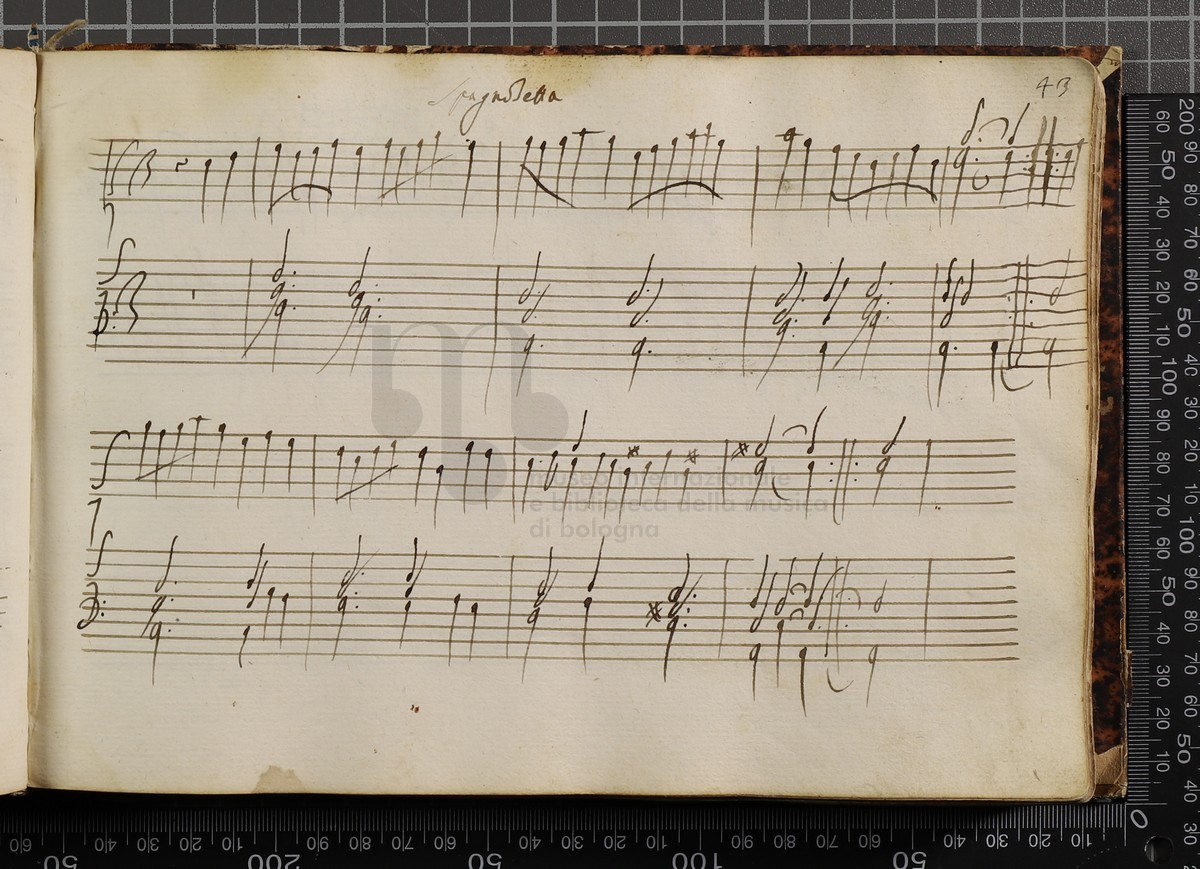 Spagnoletta
43
museo internazionale
e biblioteca della musica
di bologna